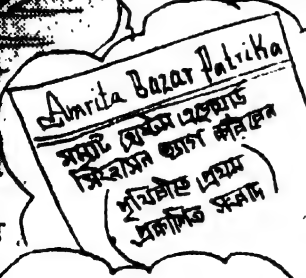 Amrita Bazar Patrika
সম্রাট প্রেমিক এডোয়ার্ড
সিংহাসন ত্যাগ করিলেন
পৃথিবীতে প্রথম
প্রকাশিত সংবাদ